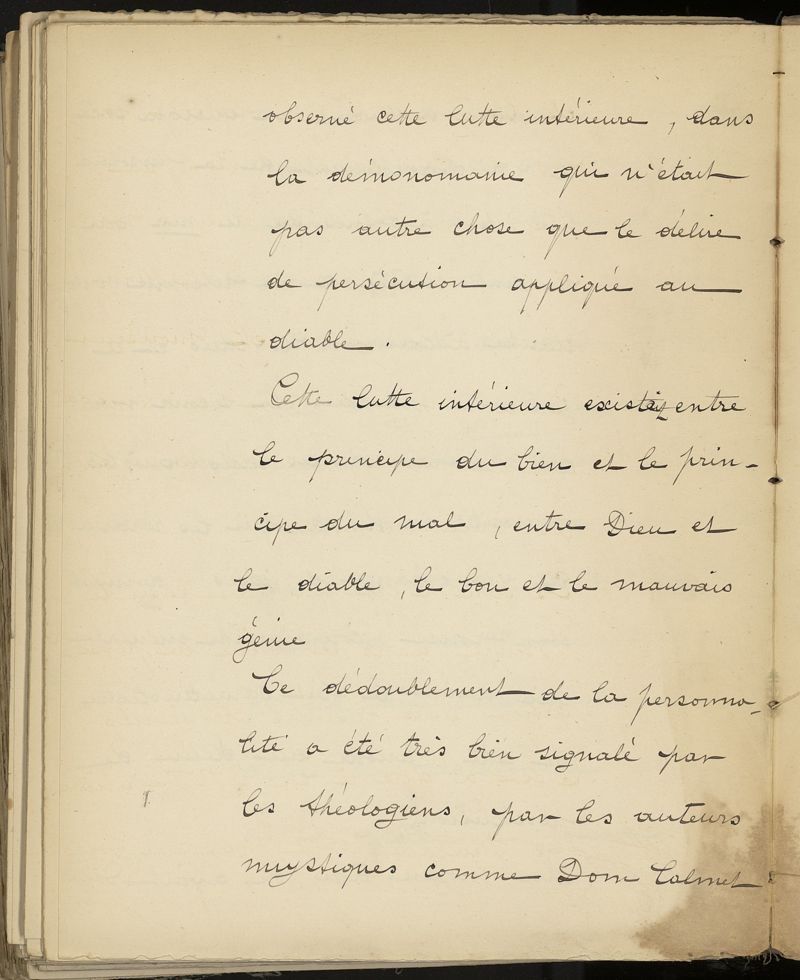 observé cette lutte intérieure, dans
la démonomanie qui n'était
pas autre chose que le délire
de persécution appliqué au
diable.
Cette lutte intérieure existait entre
le principe du bien et le prin-
cipe du mal, entre Dieu et
le diable, le bon et le mauvais
génie
Ce dédoublement de la personna-
lité a été très bien signalé par
les théologiens, par les auteurs
mystiques comme Dom Calmet